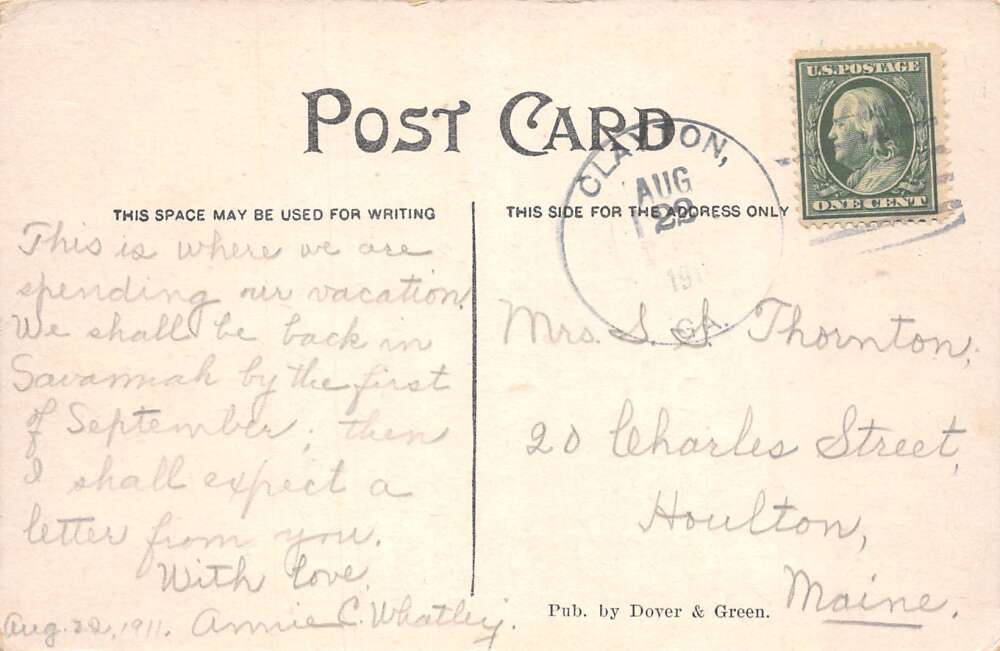 POST CARD
U.S. POSTAGE
ONE CENT
CLAYTON,
AUG
22
191
GA.
THIS SPACE MAY BE USED FOR WRITING
THIS SIDE FOR THE ADDRESS ONLY
This is where we are
spending our vacation.
We shall be back in
Savannah by the first
of September; then
I shall expect a
letter from you.
With love,
Annie C. Whatley.
Aug. 22, 1911.
Mrs. S. Thornton,
20 Charles Street,
Houlton,
Maine.
Pub. by Dover & Green.